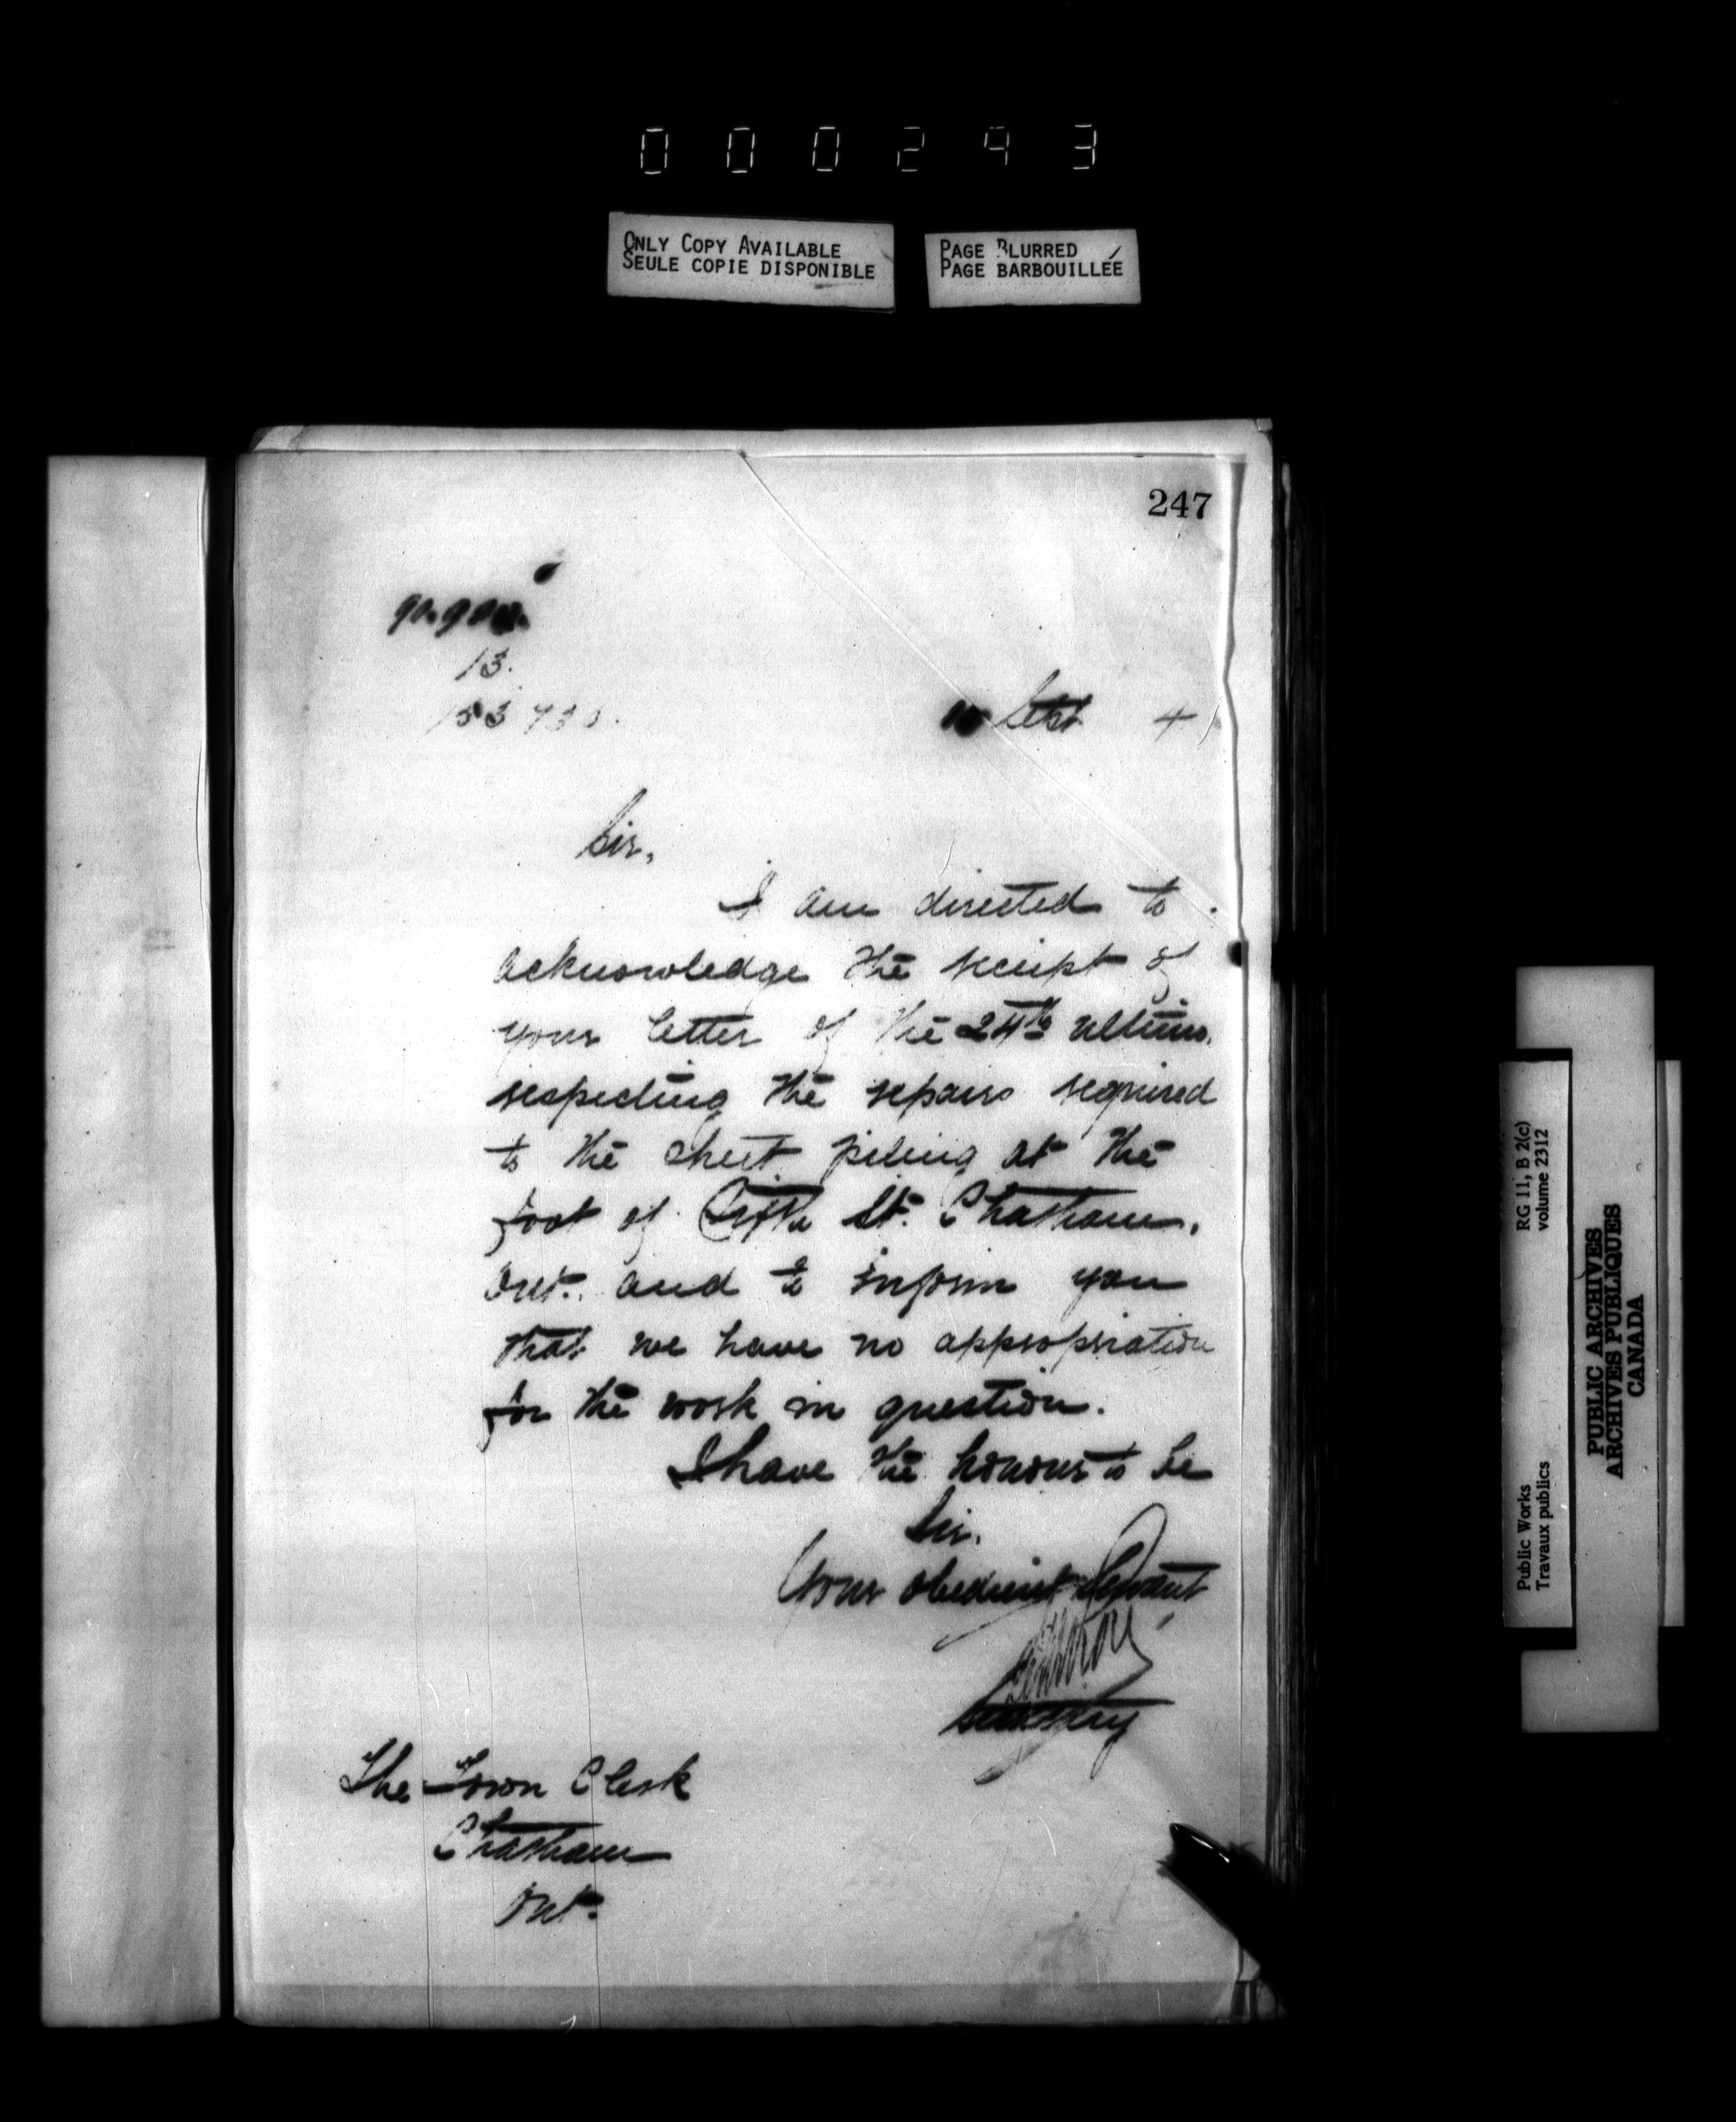 000293
ONLY COPY AVAILABLE
SEULE COPIE DISPONIBLE
PAGE BLURRED
PAGE BARBOUILLÉE
247
13.
Sir,
I am directed to
acknowledge the receipt of
your letter of the 24th ultimo.
respecting the repairs required
to the sheet piling at the
foot of Fifth St. Chatham,
Ont. and to inform you
that we have no appropriation
for the work in question.
I have the honour to be
Sir,
Your obedient Servant
Secretary
The Town Clerk
Chatham
Ont.
RG 11, B 2(c)
volume 2312
Public Works
Travaux publics
PUBLIC ARCHIVES
ARCHIVES PUBLIQUES
CANADA